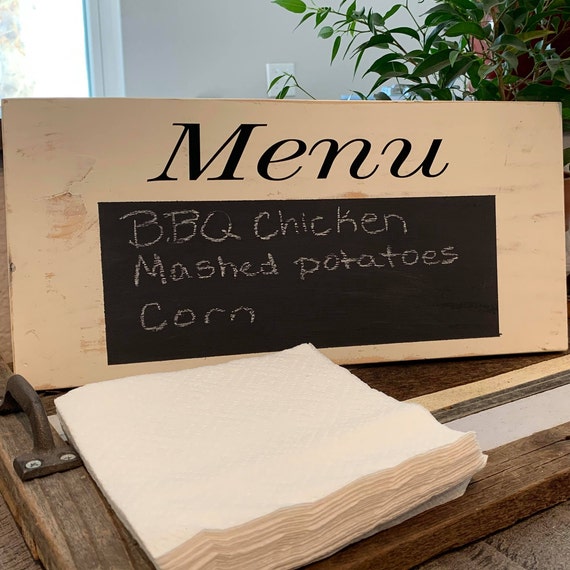 Menu
B.BQ Chicken
Mashed potatoes
Corn